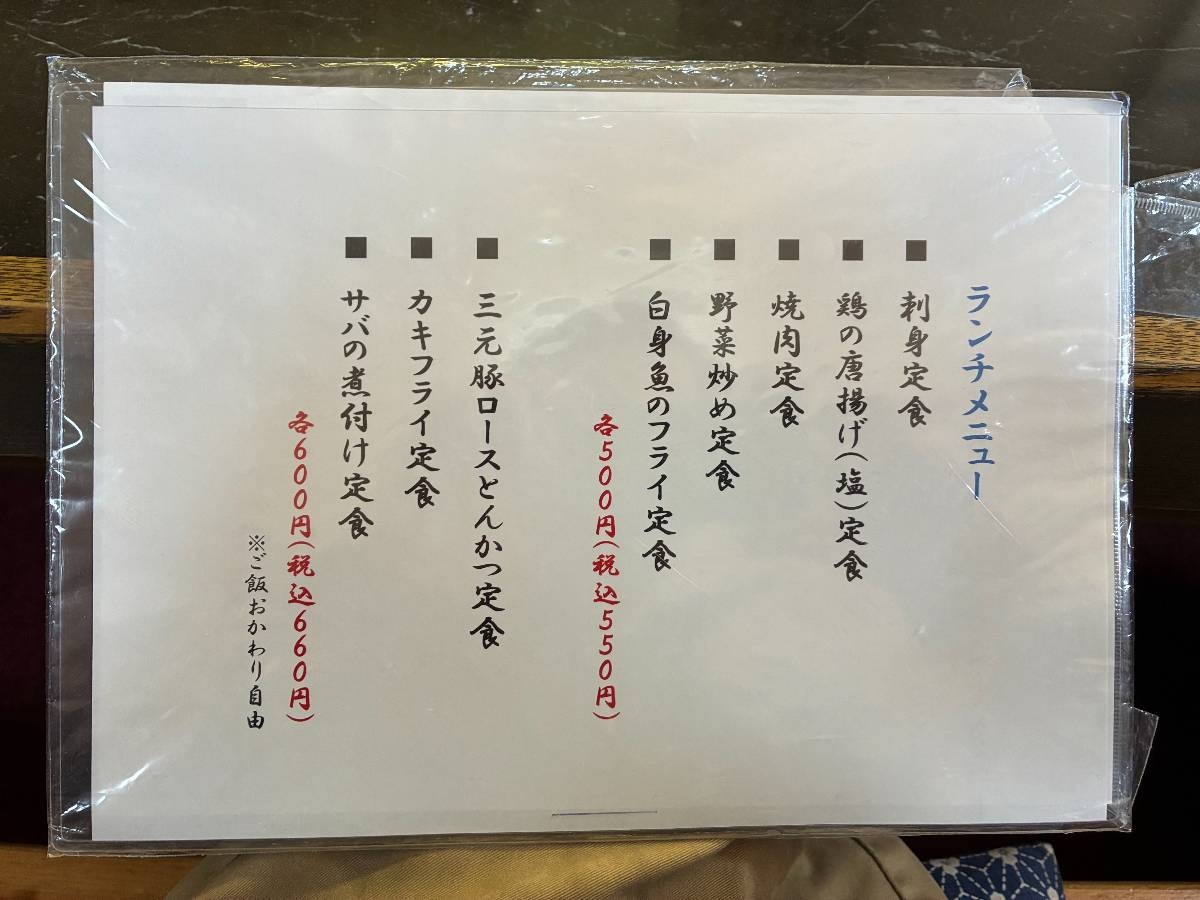 ランチメニュー
■ 刺身定食
■ 鶏の唐揚げ(塩)定食
■ 焼肉定食
■ 野菜炒め定食
■ 白身魚のフライ定食
各500円(税込550円)
■ 三元豚ロースとんかつ定食
■ カキフライ定食
■ サバの煮付け定食
各600円(税込660円)
※ご飯おかわり自由